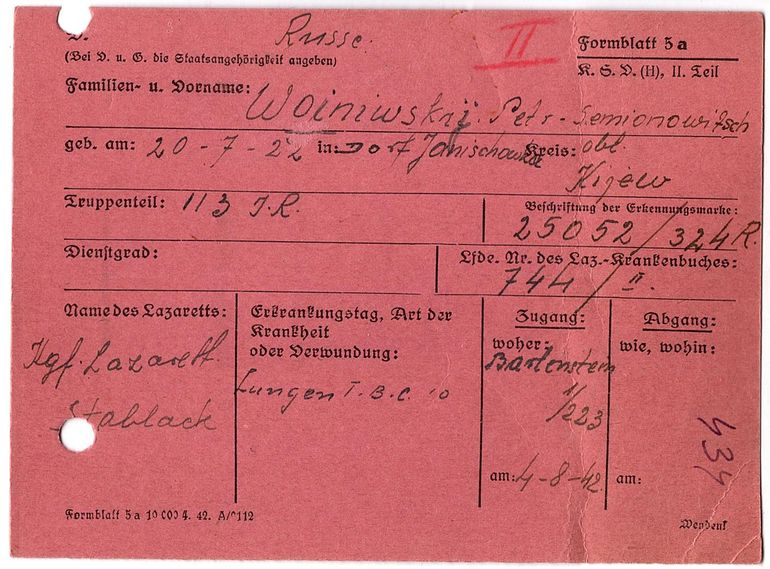 Russe.
II
Formblatt 5a
(Bei D. u. G. die Staatsangehörigkeit angeben)
K. S. D. (H), II. Teil
Familien- u. Vorname: Woiniwskij. Petr - Semionowitsch
geb. am: 20-7-22 in: Dorf Janischowka Kreis: obl. Kijew
Truppenteil: 113 J.R.
Beschriftung der Erkennungsmarke: 25052/324 R.
Dienstgrad:
Lfde. Nr. des Laz.-Krankenbuches: 744/II.
Name des Lazaretts:
Kgf. Lazarett.
Stablack
Erkrankungstag, Art der
Krankheit
oder Verwundung:
Lungen T.B.C.
Zugang:
woher:
Bartenstein
1/223
am: 4-8-42
Abgang:
wie, wohin:
434
am:
Formblatt 5a 10 000 4. 42. A/0112
Wenden!